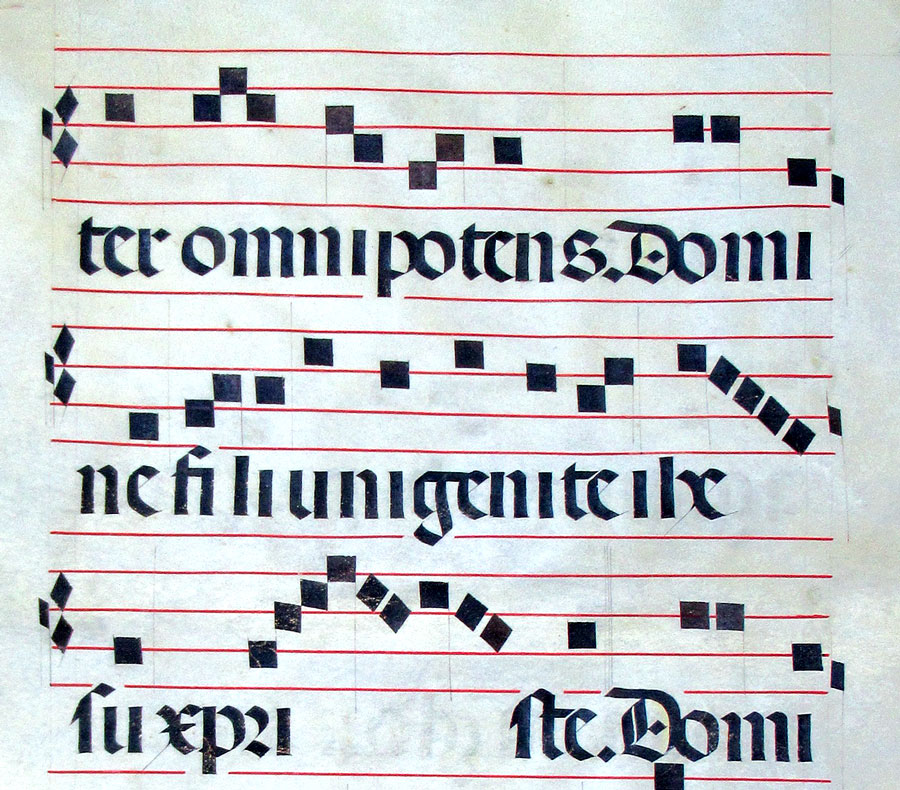 ter omnipotens. Domi
ne fili unigenite ihe
su xpri ste. Domi